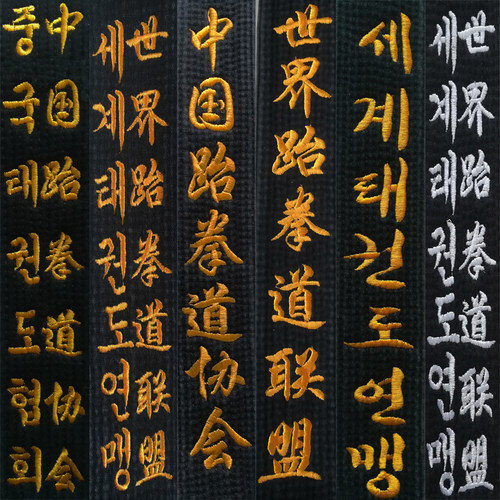 중국태권도협회
中国跆拳道协会
세계태권도연맹
世界跆拳道联盟
中国跆拳道协会
世界跆拳道联盟
세계태권도연맹
세계태권도연맹
世界跆拳道联盟